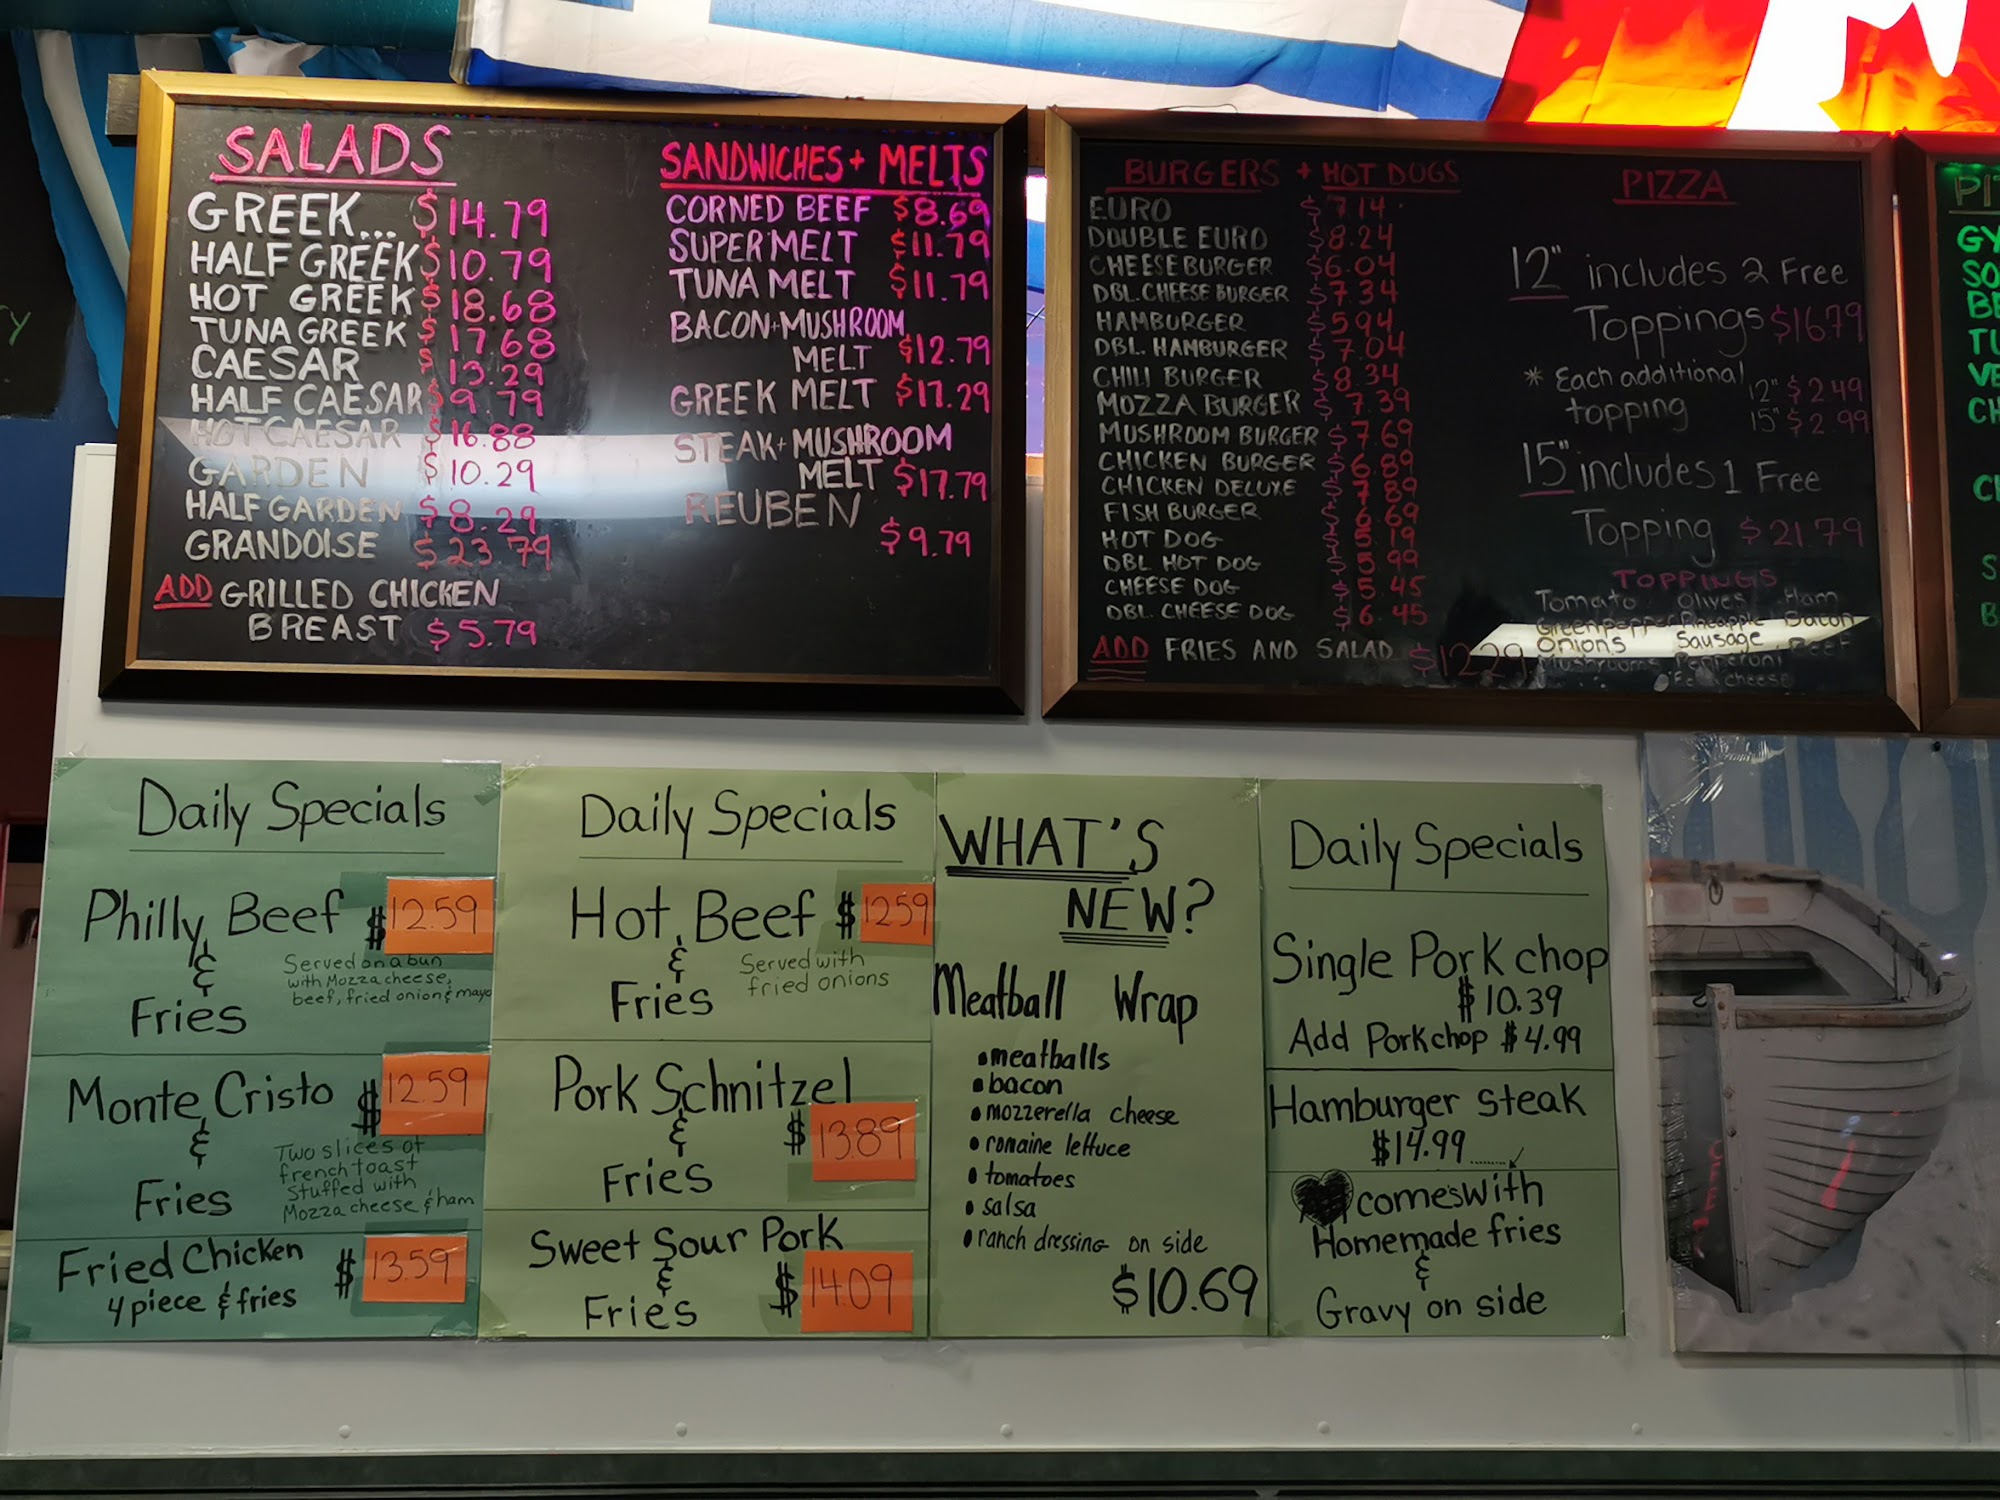 SALADS
GREEK... $14.79
HALF GREEK $10.79
HOT GREEK $18.68
TUNA GREEK $17.68
CAESAR $13.29
HALF CAESAR $9.79
HOT CAESAR $16.88
GARDEN $10.29
HALF GARDEN $8.29
GRANDOISE $23.79
ADD GRILLED CHICKEN
BREAST $5.79
SANDWICHES + MELTS
CORNED BEEF $8.69
SUPER MELT $11.79
TUNA MELT $11.79
BACON+MUSHROOM
MELT $12.79
GREEK MELT $17.29
STEAK+MUSHROOM
MELT $17.79
REUBEN
$9.79
BURGERS + HOT DOGS
EURO $7.14
DOUBLE EURO $8.24
CHEESE BURGER $6.04
DBL. CHEESE BURGER $7.34
HAMBURGER $5.94
DBL. HAMBURGER $7.04
CHILI BURGER $8.34
MOZZA BURGER $7.39
MUSHROOM BURGER $7.69
CHICKEN BURGER $6.89
CHICKEN DELUXE $7.89
FISH BURGER $6.69
HOT DOG $5.19
DBL HOT DOG $5.99
CHEESE DOG $5.45
DBL. CHEESE DOG $6.45
ADD FRIES AND SALAD $12.29
PIZZA
12" includes 2 Free
Toppings $16.79
* Each additional
topping 12" $2.49
15" $2.99
15" includes 1 Free
Topping $21.79
TOPPINGS
Tomato Olives Ham
Greenpepper Pineapple Bacon
Onions Sausage Beef
Mushrooms Pepperoni
Feta cheese
GY
SO
BE
TU
VE
CH
Daily Specials
Philly Beef $12.59
&
Fries
Served on a bun
with Mozza cheese,
beef, fried onion & mayo
Monte Cristo $12.59
&
Fries
Two slices of
french toast
Stuffed with
Mozza cheese & ham
Fried Chicken $13.59
4 piece & fries
Daily Specials
Hot Beef $12.59
&
Fries
Served with
fried onions
Pork Schnitzel
& $13.89
Fries
Sweet Sour Pork
& $14.09
Fries
WHAT'S
NEW?
Meatball Wrap
• meatballs
• bacon
• mozzerella cheese
• romaine lettuce
• tomatoes
• salsa
• ranch dressing on side
$10.69
Daily Specials
Single Pork chop
$10.39
Add Porkchop $4.99
Hamburger Steak
$14.99........
comes with
Homemade fries
&
Gravy on side